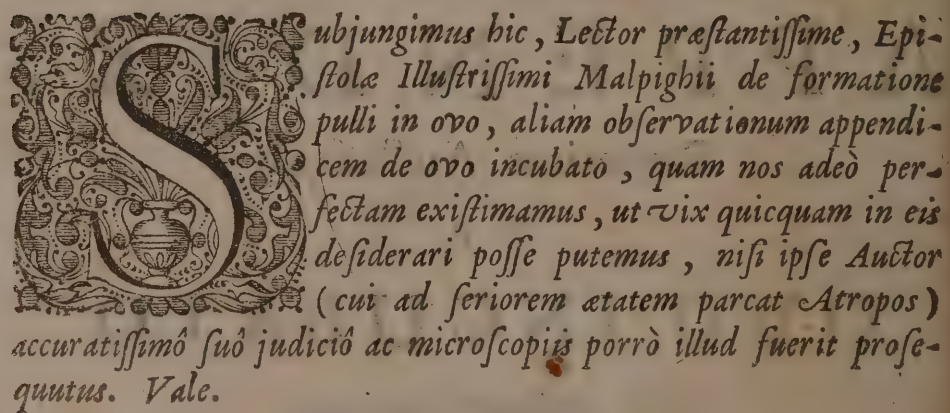 Subjungimus hic, Lector præstantissime, Epi-
stolæ Illustrissimi Malpighii de formatione
pulli in ovo, aliam observationum appendi-
cem de ovo incubato, quam nos adeò per-
fectam existimamus, ut vix quicquam in eis
desiderari posse putemus, nisi ipse Auctor
(cui ad seriorem ætatem parcat Atropos)
accuratissimô suô judiciô ac microscopiis porrò illud fuerit prose-
quutus. Vale.